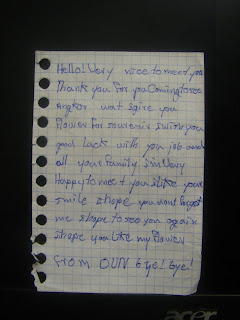 Hello! Very nice to meet you
Thank you For you Coming to see
Angkor wat I give you
Flower For souvenir I wish you
good Luck with you job and
all your Family I'm Very
Happy to meet you I like your
smile I hope you wont Forget
me I hope to see you again
I hope you like my Flower
From OUN bye! bye!
acer